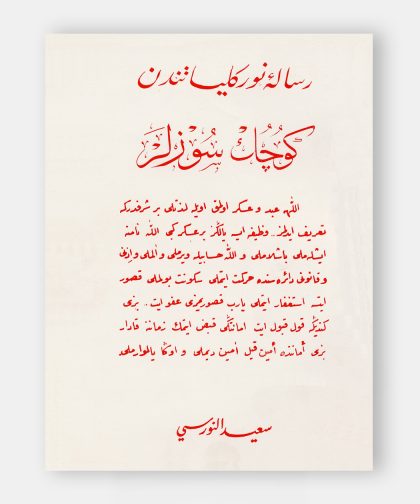 رسالهٔ نور كلياتندن
كُوچُك سُوزلَر
اللّٰهه عبد و عسكر اولمق اويله لذتلى بر شرفدركه
تعريف ايدلمز. وظيفه ايسه يالڭز بر عسكر كبى اللّٰه نامنه
ايشله‌ملى باشلاملى و اللّٰه حسابيله ويرملى و آلملى و اذنى
و قانونى دائره‌سنده حركت ايتملى سكونت بولملى قصور
ايتسه استغفار ايتملى يارب قصوريمزى عفو ايت .. بزى
كنديڭه قول قبول ايت امانتڭى قبض ايتمك زماننه قادار
بزى امانتده أمين قيل آمين ديملى و اوڭا يالوارملىدر
سعيد النورسي